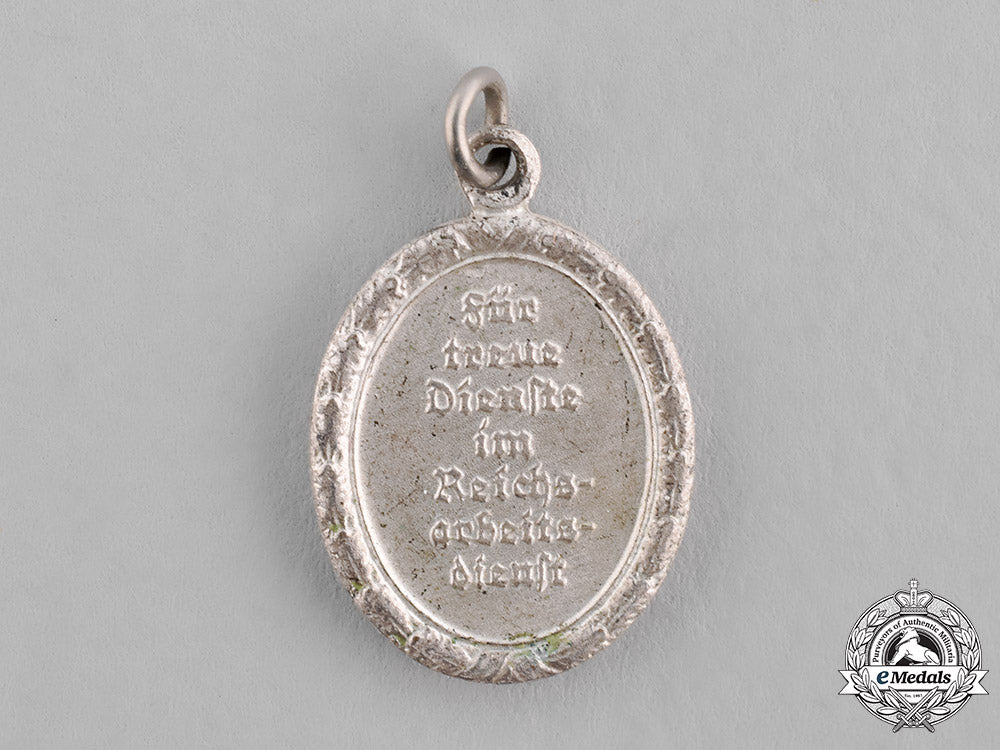 Für
treue
Dienste
im
Reichs-
arbeits-
dienst
Purveyors of Authentic Militaria
eMedals
Est. 1967